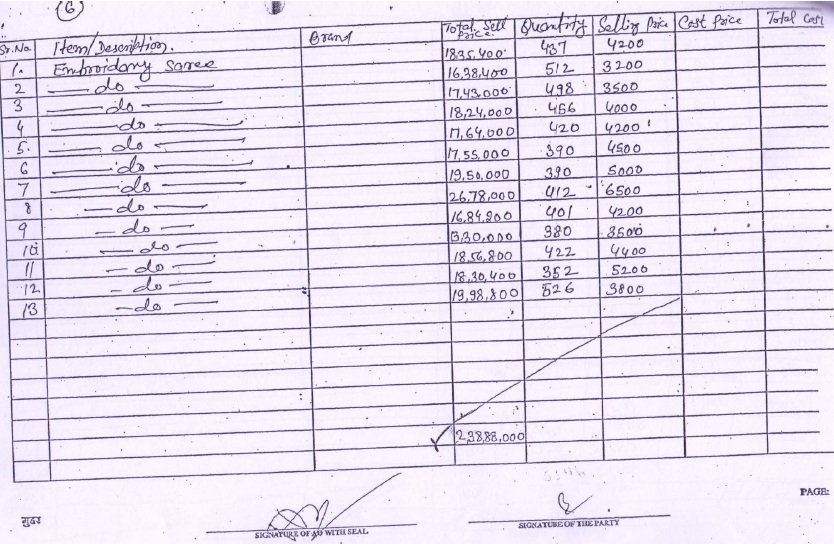 (6)
Sr.No Item/Description. Brand Total Sell Price. Quantity Selling Price Cost Price Total Cost
1. Embroidary Saree 1835,400 437 4200
2 — do — 16,38,400 512 3200
3 — do — 17,43,000 498 3500
4 — do — 18,24,000 456 4000
5. — do — 17,64,000 420 4200
6 — do — 17,55,000 390 4500
7 — do — 19,50,000 390 5000
8 — do — 26,78,000 412 6500
9 — do — 16,84,200 401 4200
10 — do — 13,30,000 380 3500
11 — do — 18,56,800 422 4400
12 — do — 18,30,400 352 5200
13 — do — 19,98,800 526 3800
2,38,88,000
PAGE:
SIGNATURE OF AO WITH SEAL SIGNATURE OF THE PARTY